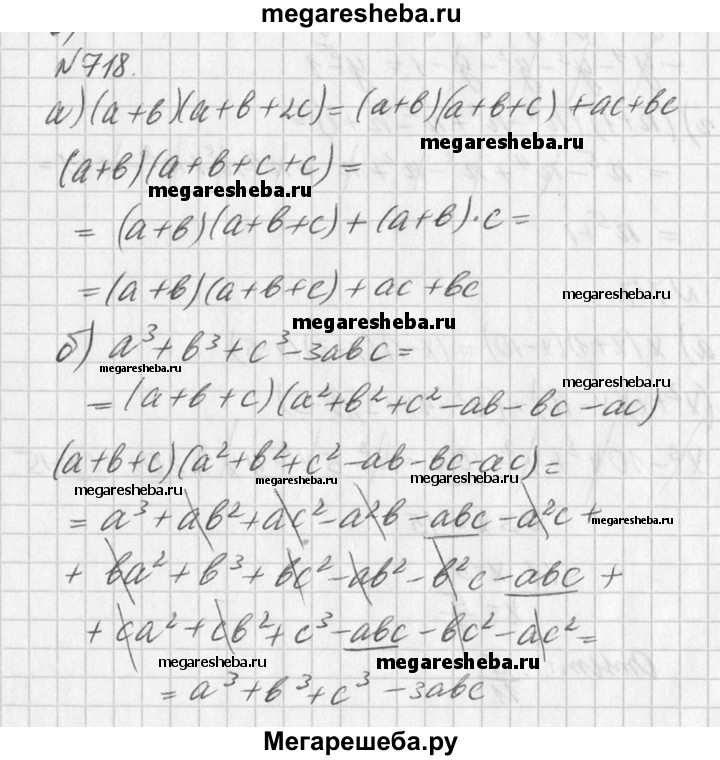 megaresheba.ru
№718.
а) (a+b)(a+b+2c) = (a+b)(a+b+c) + ac+bc
megaresheba.ru
(a+b)(a+b+c+c) =
megaresheba.ru
= (a+b)(a+b+c) + (a+b)·c =
= (a+b)(a+b+c) + ac + bc
megaresheba.ru
megaresheba.ru
б) a³+b³+c³-3abc =
megaresheba.ru
megaresheba.ru
= (a+b+c)(a²+b²+c²-ab-bc-ac)
(a+b+c)(a²+b²+c²-ab-bc-ac) =
megaresheba.ru megaresheba.ru megaresheba.ru
= a³+ab²+ac²-a²b-abc-a²c+
megaresheba.ru
+ ba²+b³+bc²-ab²-b²c-abc+
+ ca²+cb²+c³-abc-bc²-ac²=
megaresheba.ru megaresheba.ru
= a³+b³+c³-3abc
Мегарешеба.ру